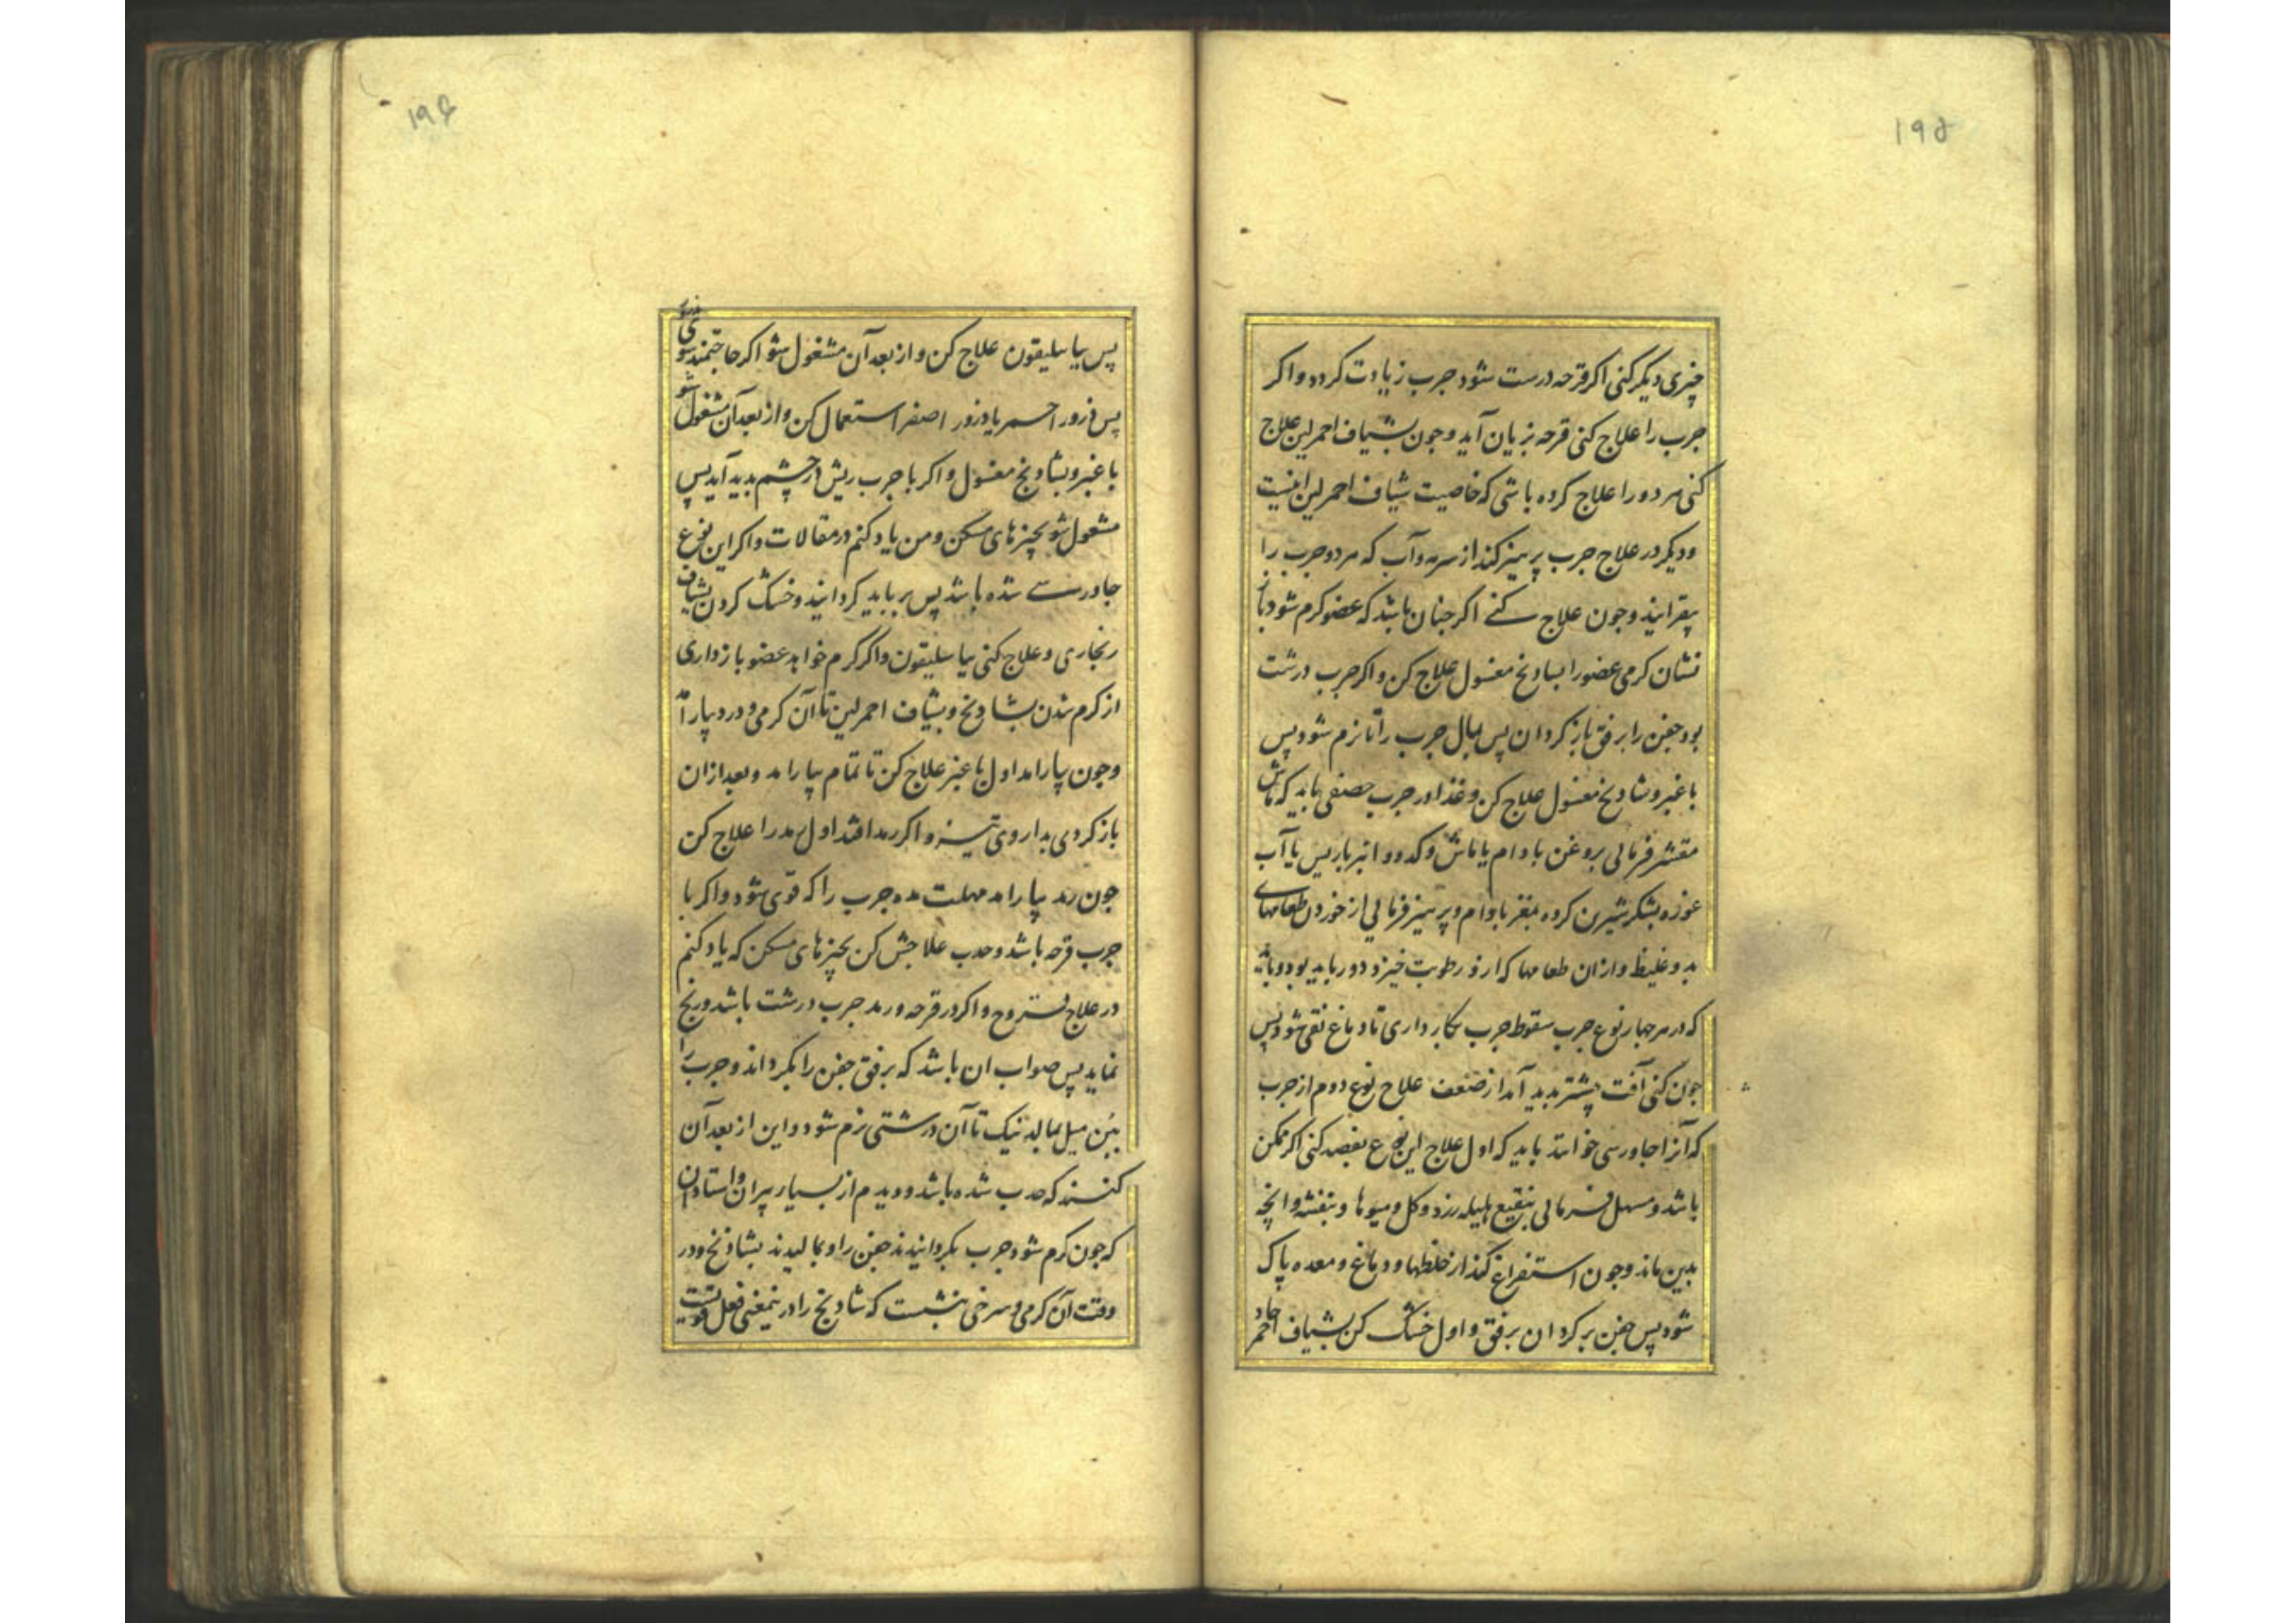 ۱۹۵
چیزی دیکر کنی اکر قرحه درست شود جرب زیادت کردد و اکر
جرب را علاج کنی قرحه بزیان آید و جون بشیاف احمر لین علاج
کنی هر دو را علاج کرده باشی که خاصیت شیاف احمر لین اینست
و دیکر در علاج جرب پرهیز کند از سرمه و آب که هر دو جرب را
بیفزایند و جون علاج کنے اکر جنان باشد که عضو کرم شود باز
نشان کرمی عضو را بشادنج مغسول علاج کن و اکر جرب درشت
بود جفن را برفق باز کردان پس بمال جرب را تا نرم شود پس
با عنبر و شادنج مغسول علاج کن و غذا در جرب صنفی باید که ماش
مقشر فرمائی بروغن بادام یا ماش و کدو و انبرباریس یا آب
غوزه بشکر شیرین کرده بمغز بادام و پرهیز فرمائی از خوردن طعامهای
بد و غلیظ و ازان طعامها که ازو رطوبت خیزد دور باید بود و باید
که در هر جهار نوع جرب سقوط جرب بکار داری تا دماغ نقی شود پس
جون کنی آفت بیشتر بدید آمد از ضعف علاج نوع دوم از جرب
که آنرا جاورسی خوانند باید که اول علاج این نوع بفصد کنی اکر ممکن
باشد و مسهل فرمائی بنقیع هلیله زرد و کل و میوها و بنفشه و انجه
بدین ماند و جون استفراغ کند از خلطها و دماغ و معده پاک
شود پس جفن بر کردان برفق و اول خشک کن بشیاف احمر حاد
۱۹۶
پس بباسلیقون علاج کن و از بعد آن مشغول شو اکر حاجتمند شوی
پس ذرور احمر یا ذرور اصفر استعمال کن و از بعد آن مشغول شو
با عنبر و بشادنج مغسول و اکر با جرب ریش در چشم بدید آید پس
مشغول شو بچیزهای مسکن و من یاد کنم در مقالات و اکر این نوع
جاورسے شده باشد پس بر باید کردانید و خشک کردن بشیاف
زنجاری و علاج کنی بباسلیقون و اکر کرم خواهد عضو باز داری
از کرم شدن بشادنج و بشیاف احمر لین تا آن کرمی و درد بیارامد
و جون بیارامد اول با عنبر علاج کن تا تمام بیارامد و بعد ازان
باز کردی بداروی تیز و اکر رمد افتد اول رمد را علاج کن
جون رمد بیارامد مهلت مده جرب را که قوی شود و اکر با
جرب قرحه باشد و حدب علاجش کن بچیزهای مسکن که یاد کنم
در علاج قروح و اکر در قرحه و رمد جرب درشت باشد و رنج
نماید پس صواب ان باشد که برفق جفن را بکرداند و جرب را
ببن میل بمالد نیک تا آن درشتی نرم شود و این از بعد آن
کنند که حدب شده باشد و دیدم از بسیار پیران و استادان
که جون کرم شود جرب بکردانیدند جفن را و بمالیدند بشادنج و در
وقت آن کرمی و سرخی بنشست که شادنج را درینمعنی فعل قویست